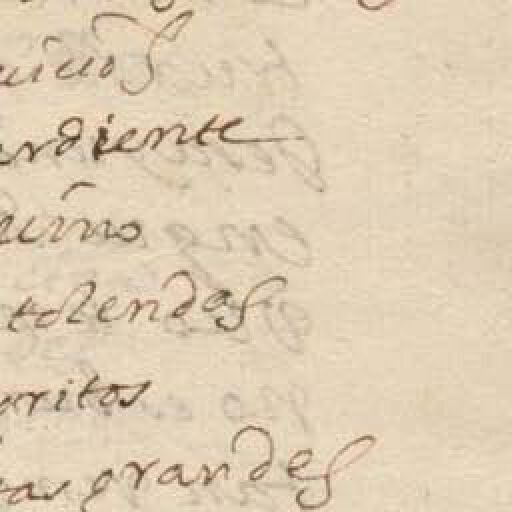 uiuos
erdiente
uino
tolendas
oritos
tas grandes